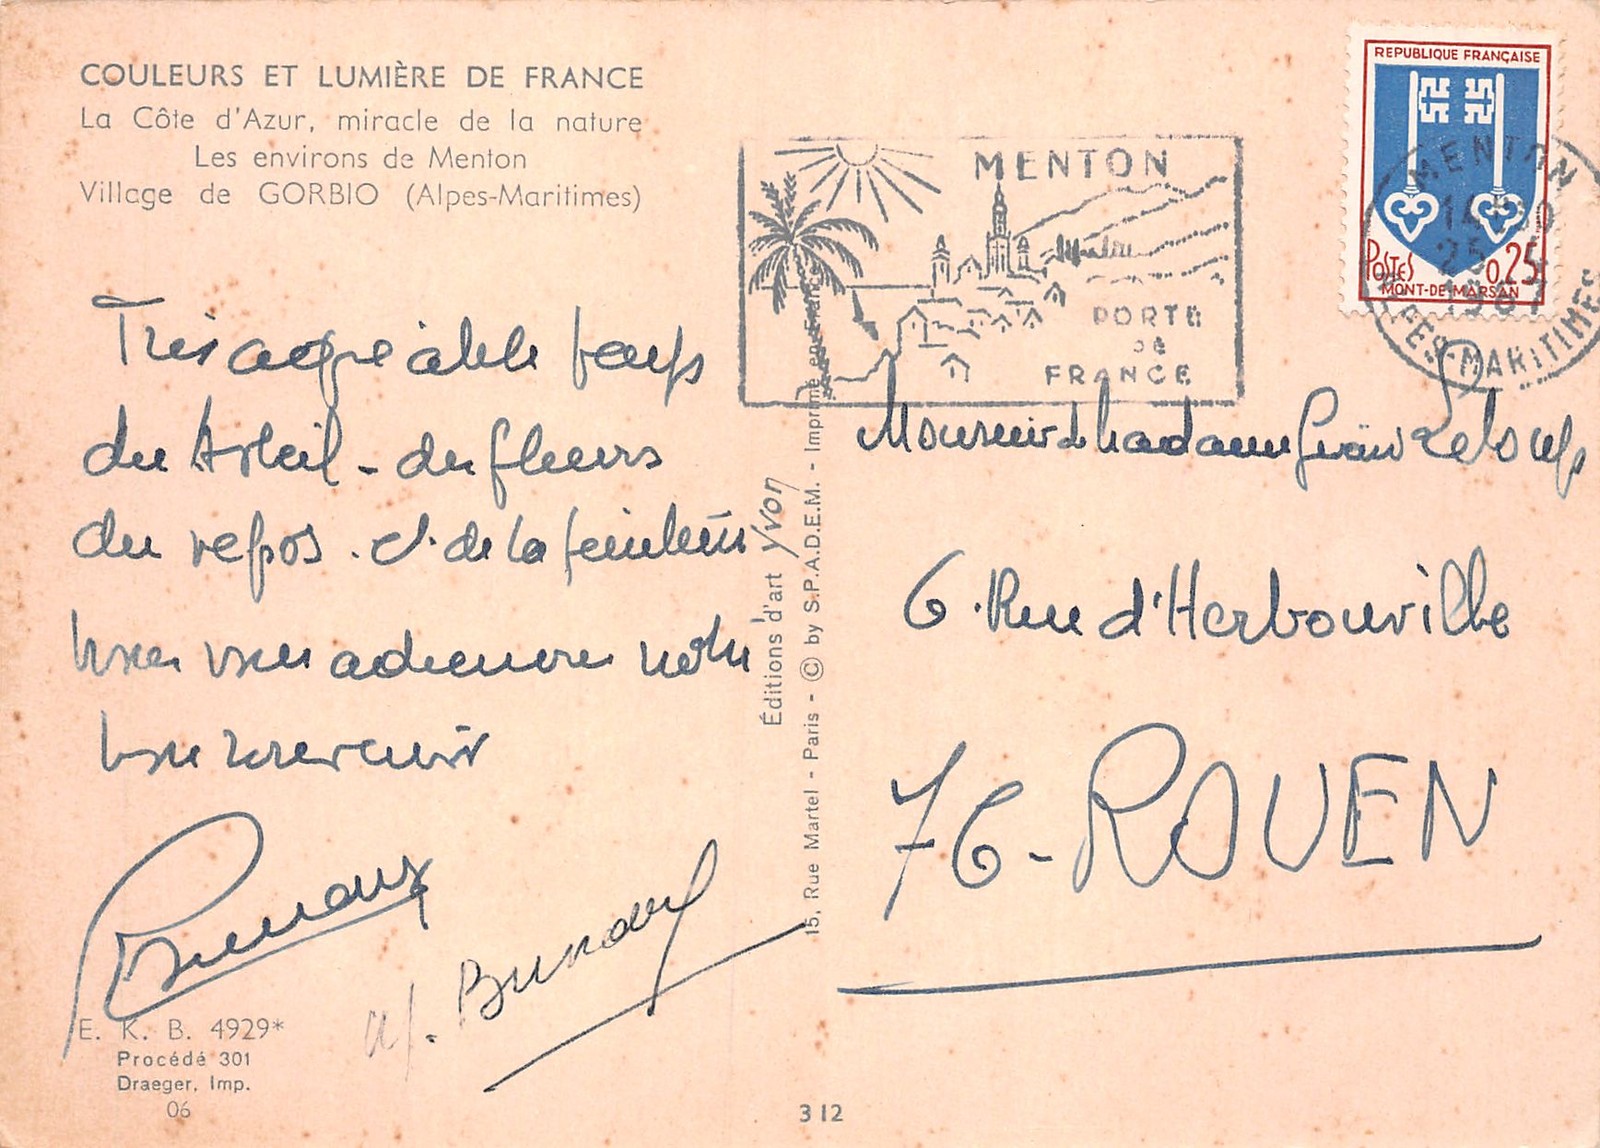 COULEURS ET LUMIÈRE DE FRANCE
La Côte d'Azur, miracle de la nature
Les environs de Menton
Village de GORBIO (Alpes-Maritimes)
REPUBLIQUE FRANÇAISE
POSTES 0,25
MONT-DE-MARSAN
MENTON
25
ALPES-MARITIMES
MENTON
PORTE
DE
FRANCE
Très agréable temps
du soleil - des fleurs
du repos. et de la peinture
vous adressons notre
bon souvenir
E. K. B. 4929*
Procédé 301
Draeger, Imp.
06
Éditions d'art Yvon
15, Rue Martel - Paris - © by S.P.A.D.E.M. - Imprimé en France
312
Monsieur & Madame
6. Rue d'Herbouville
76 - ROUEN